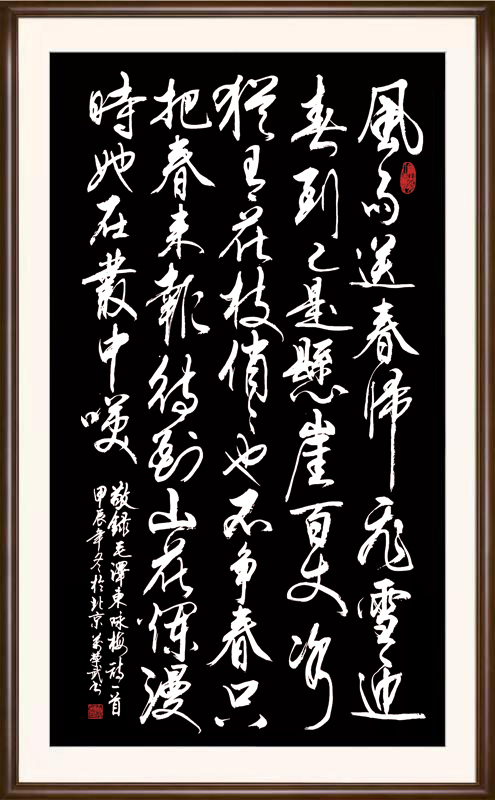 風雨送春歸飛雪迎
春到已是懸崖百丈冰
猶有花枝俏〻也不爭春只
把春來報待到山花爛漫
時她在叢中咲
敬録毛澤東咏梅詩一首
甲辰年冬於北京